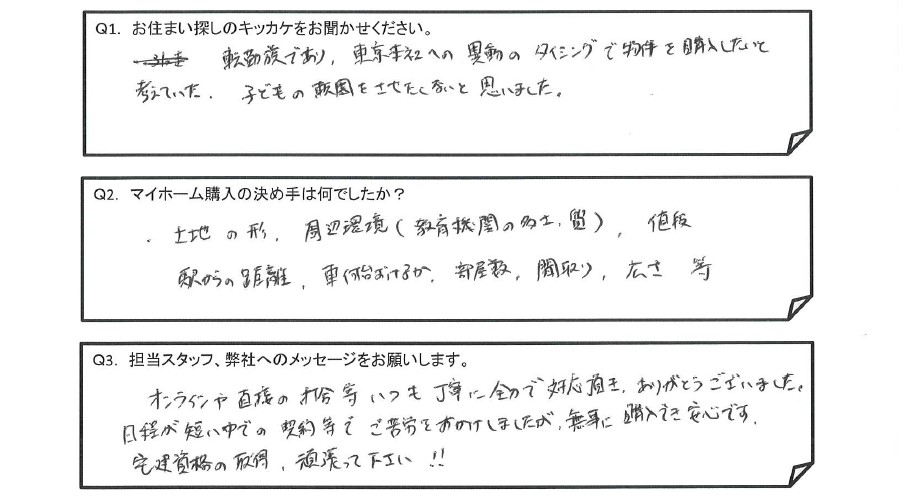 Q1. お住まい探しのキッカケをお聞かせください。
転勤族であり、東京本社への異動のタイミングで物件を購入したいと
考えていた。子どもの転園をさせたくないと思いました。
Q2. マイホーム購入の決め手は何でしたか？
・土地の形、周辺環境(教育機関の多さ、質)、値段
駅からの距離、車何台おけるか、部屋数、間取り、広さ 等
Q3. 担当スタッフ、弊社へのメッセージをお願いします。
オンラインや直接の打合等いつも丁寧に全力で対応頂き、ありがとうございました。
日程が短い中での契約等でご苦労をおかけしましたが、無事に購入でき安心です。
宅建資格の取得、頑張って下さい!!